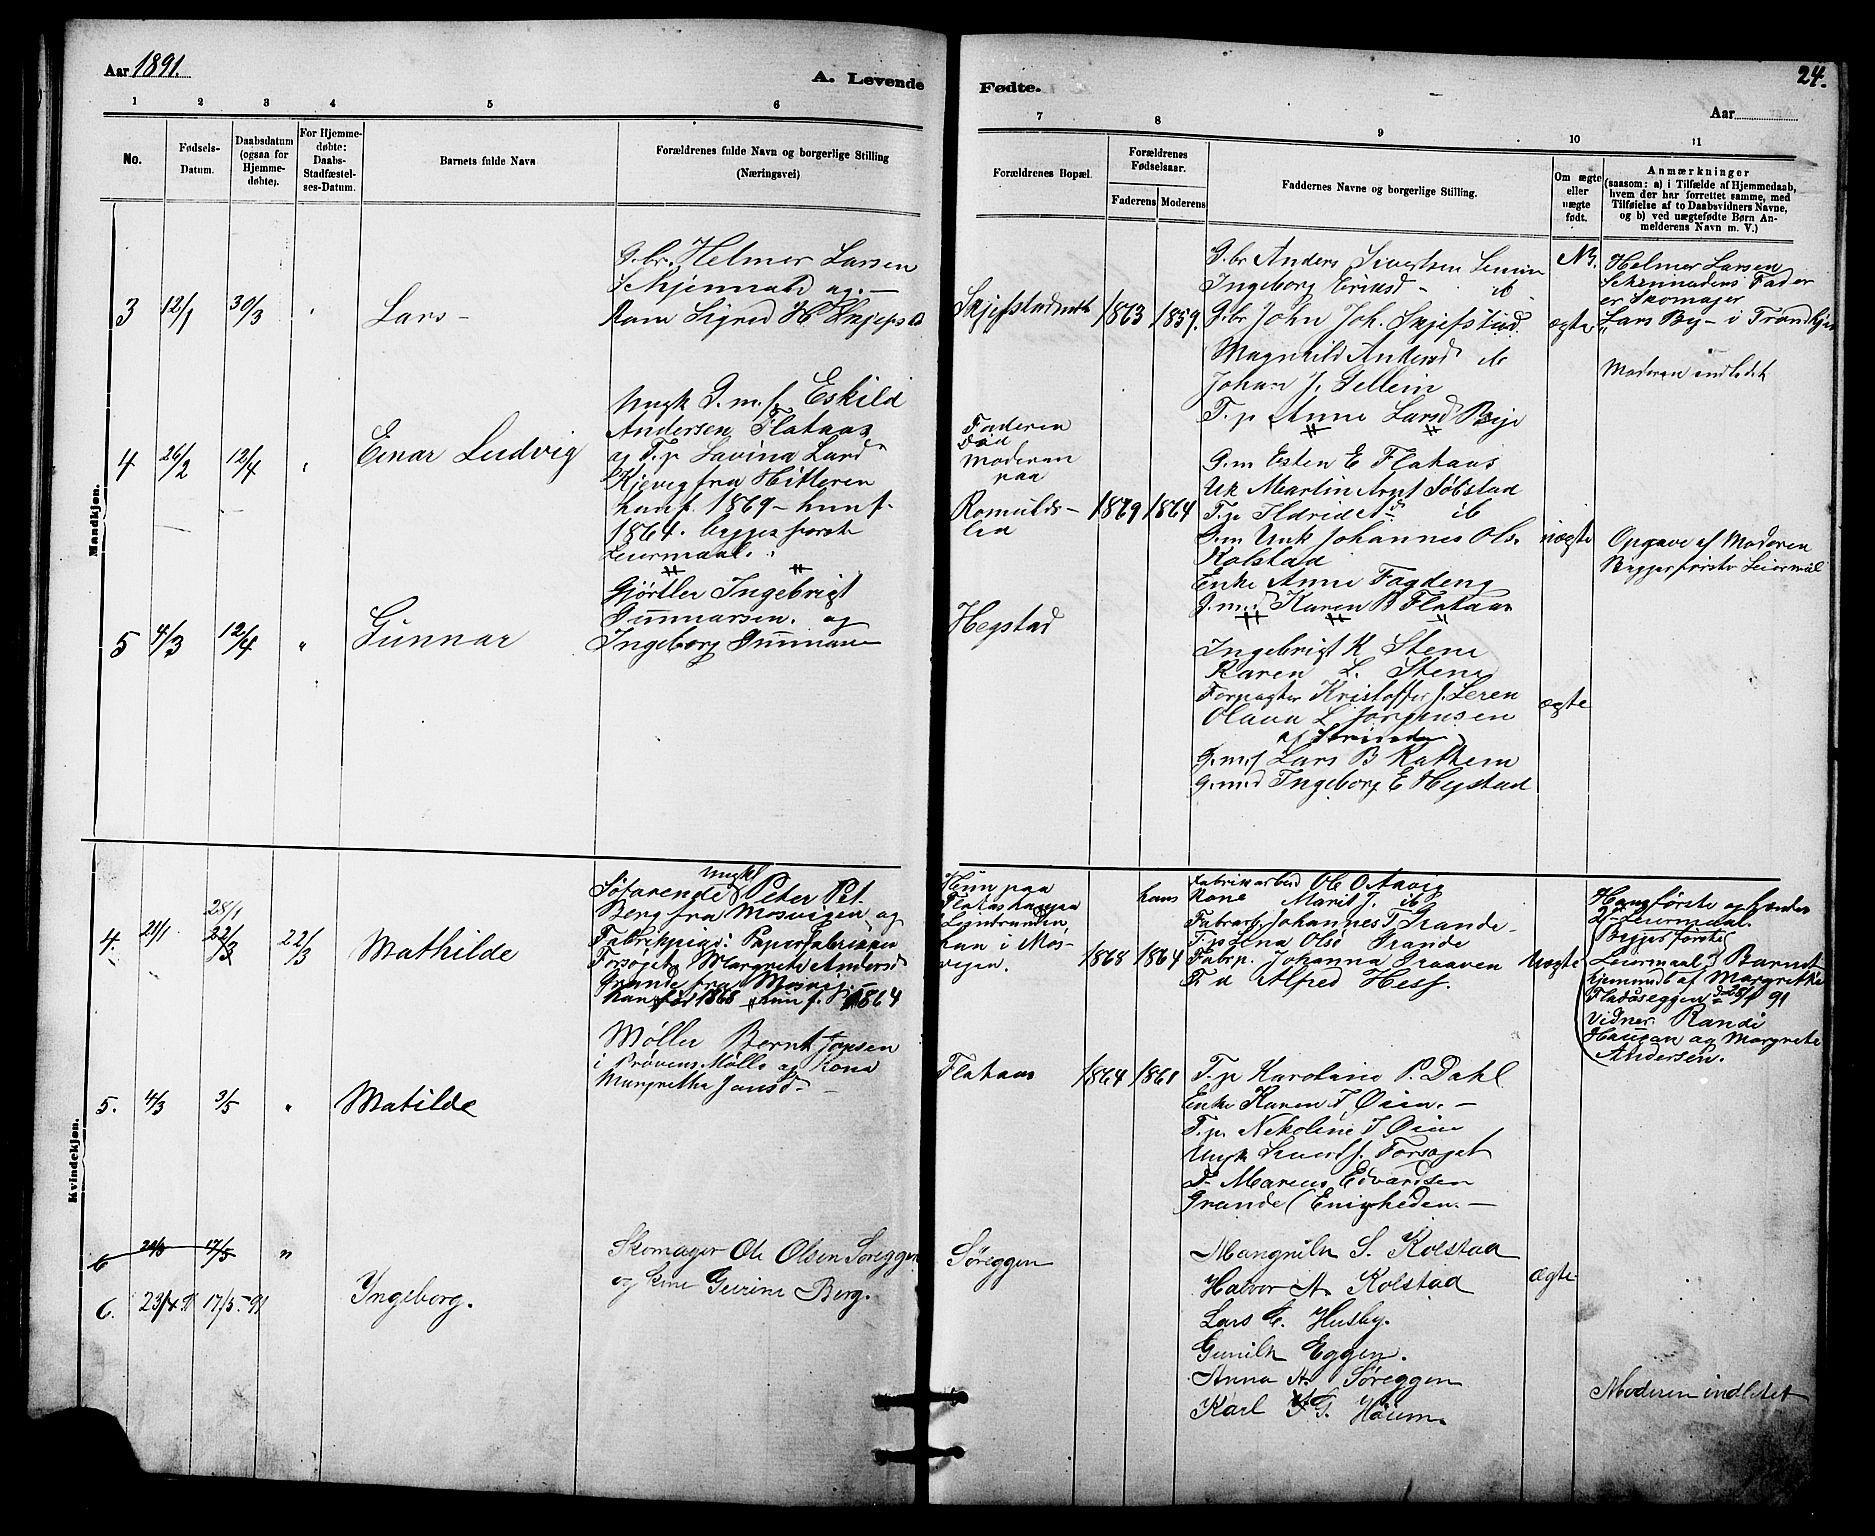 Aar 1891.
A. Levende
Fødte.
24.
Aar
1 2 3 4 5 6
7 8 9 10 11
No.
Fødsels-
Datum.
Daabsdatum
(ogsaa for
Hjemme-
døbte).
For Hjemme-
døbte:
Daabs-
Stadfæstel-
ses-Datum.
Barnets fulde Navn
Forældrenes fulde Navn og borgerlige Stilling
(Næringsvei)
Forældrenes Bopæl.
Forældrenes
Fødselsaar.
Faderens Moderens
Faddernes Navne og borgerlige Stilling.
Om ægte
eller
uægte
født.
Anmærkninger
(saasom: a) i Tilfælde af Hjemmedaab,
hvem der har forrettet samme, med
Tilføielse af to Daabsvidners Navne,
og b) ved uægtefødte Børn An-
melderens Navn m. V.)
Mandkjøn.
3 12/1 30/3 Lars
G.br. Helmer Larsen
og
Kone Sigred H
1863 1859.
G.br Anders Sivertsen
Ingeborg Eriksd ib
G.br John Joh. Skjefstad
Magnhild Andersd ib
Johan J.
T.p Anne Larsd Bye
NB.
ægte
Helmer Larsen
Fader
er Skomager
Lars By - i Trondhjem
Moderen indledet
4 26/2 12/4 " Einar Ludvig
Ungk G.m.s Eskild
Andersen Flataas
og T.p Lavina Larsd
fra Hitteren
han f. 1869 - hun f.
1864. begges første
Leiermaal.
Faderen
Moderen
paa
Romulds-
lia
1869 1864
G.m Esten E Flataas
Uk Martin Arnt
T.p Ildrid ib
G.m Unk Johannes Ols.
Kolstad
Enke Anne
Karen B Flataas
uægte
Opgave af Moderen
Begges første Leiermål
5 4/3 12/4 " Gunnar
Gjørtler Ingebrigt
Gunnarsen. og
Ingeborg
Hegstad
Ingebrigt K Stene
Karen L. Stene
Forpagter Kristoffer J. Leren
Olava L Jørgensen
af
G.m.s Lars B Kattem
G.m.d Ingeborg E Hegstad
ægte
Kvindekjøn.
4. 21/1 28/1
22/3 22/3 Mathilde
ungkl
Søfarende Peter Pet.
Berg fra Mosvigen og
Fabrikpige: Papirfabrikken
Forsøget Margrete Andersd
Grande fra
han før 1868 hun f. 1864
Hun paa
han i Mos-
vigen.
1868 1864
hans
Fabrikarbeid Ole O Aavig
Kone Marit J. ib
Fabrarb Johannes T Grande
T.p Lena Olsd Grande
Fabrp. Johanna Graaven
T d Alfred Hess.
Uægte
Hans første og hendes
2det Leiermaal.
(Begges første
Leiermaal) Barnet
hjemmedt af Margrethe
Flataaseggen d 28/1 91
Vidner Randi
Haugan og Margrete
Andersen.
5. 4/3 3/5 " Matilde
Møller Bernt Jensen
i Prøvens Mølle og Kone
Margretha Jensd
Flataas 1864 1861
T.p Karoline P. Dahl
Enke Karen T Øien.
T.p. Nikoline T Øien
Ungk Forsøget
D. Marcus Edvardsen
Grande (Enigheden.
6 17/5 "
Skomager Ole Olsen Søreggen
og Kone Gurine Berg.
6. 23/4 91 17/5 - 91 Ingeborg.
Søreggen
Mangnild S. Kolstad
Halvor A. Kolstad
Lars E. Husby.
Gunild Eggen.
Anna A. Søreggen
Karl G. Houm.
ægte
Moderen indledet